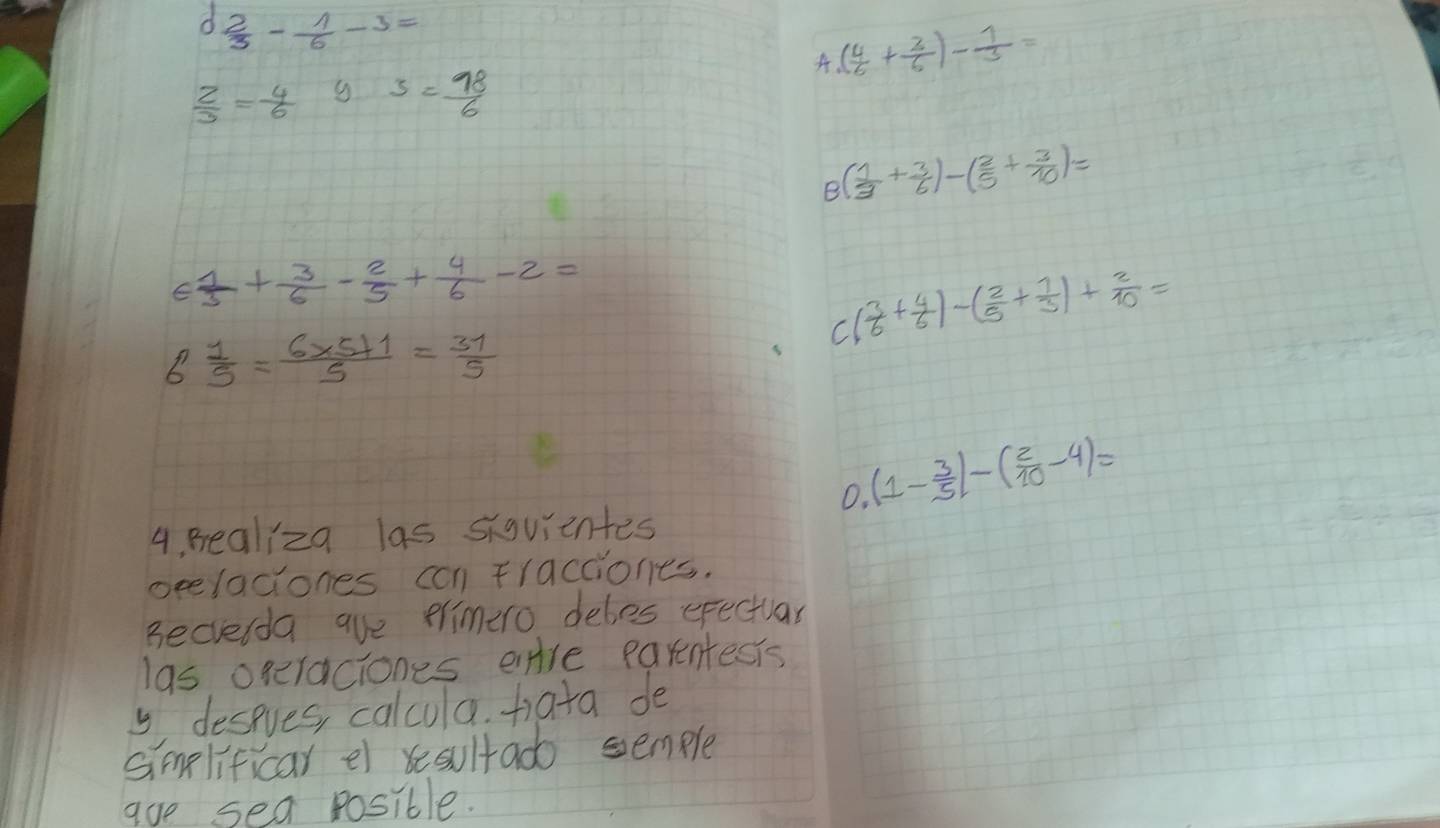 d 2/3 - 1/6 - 3 =
2/3 = 4/6 y 3 = 18/6
e 1/5 + 3/6 - 2/5 + 4/6 - 2 =
6 1/5 = 6x5+1/5 = 31/5
4. Realiza las siguientes
operaciones con fracciones.
Recuerda que primero debes efectuar
las operaciones entre parentesis
y despues, calcula. trata de
simplificar el resultado semple
que sea posible.
A. (4/6 + 2/6) - 1/3 =
B (1/3 + 3/6) - (2/5 + 3/10) =
C (3/6 + 4/6) - (2/5 + 1/5) + 2/10 =
D. (1 - 3/5) - (2/10 - 4) =